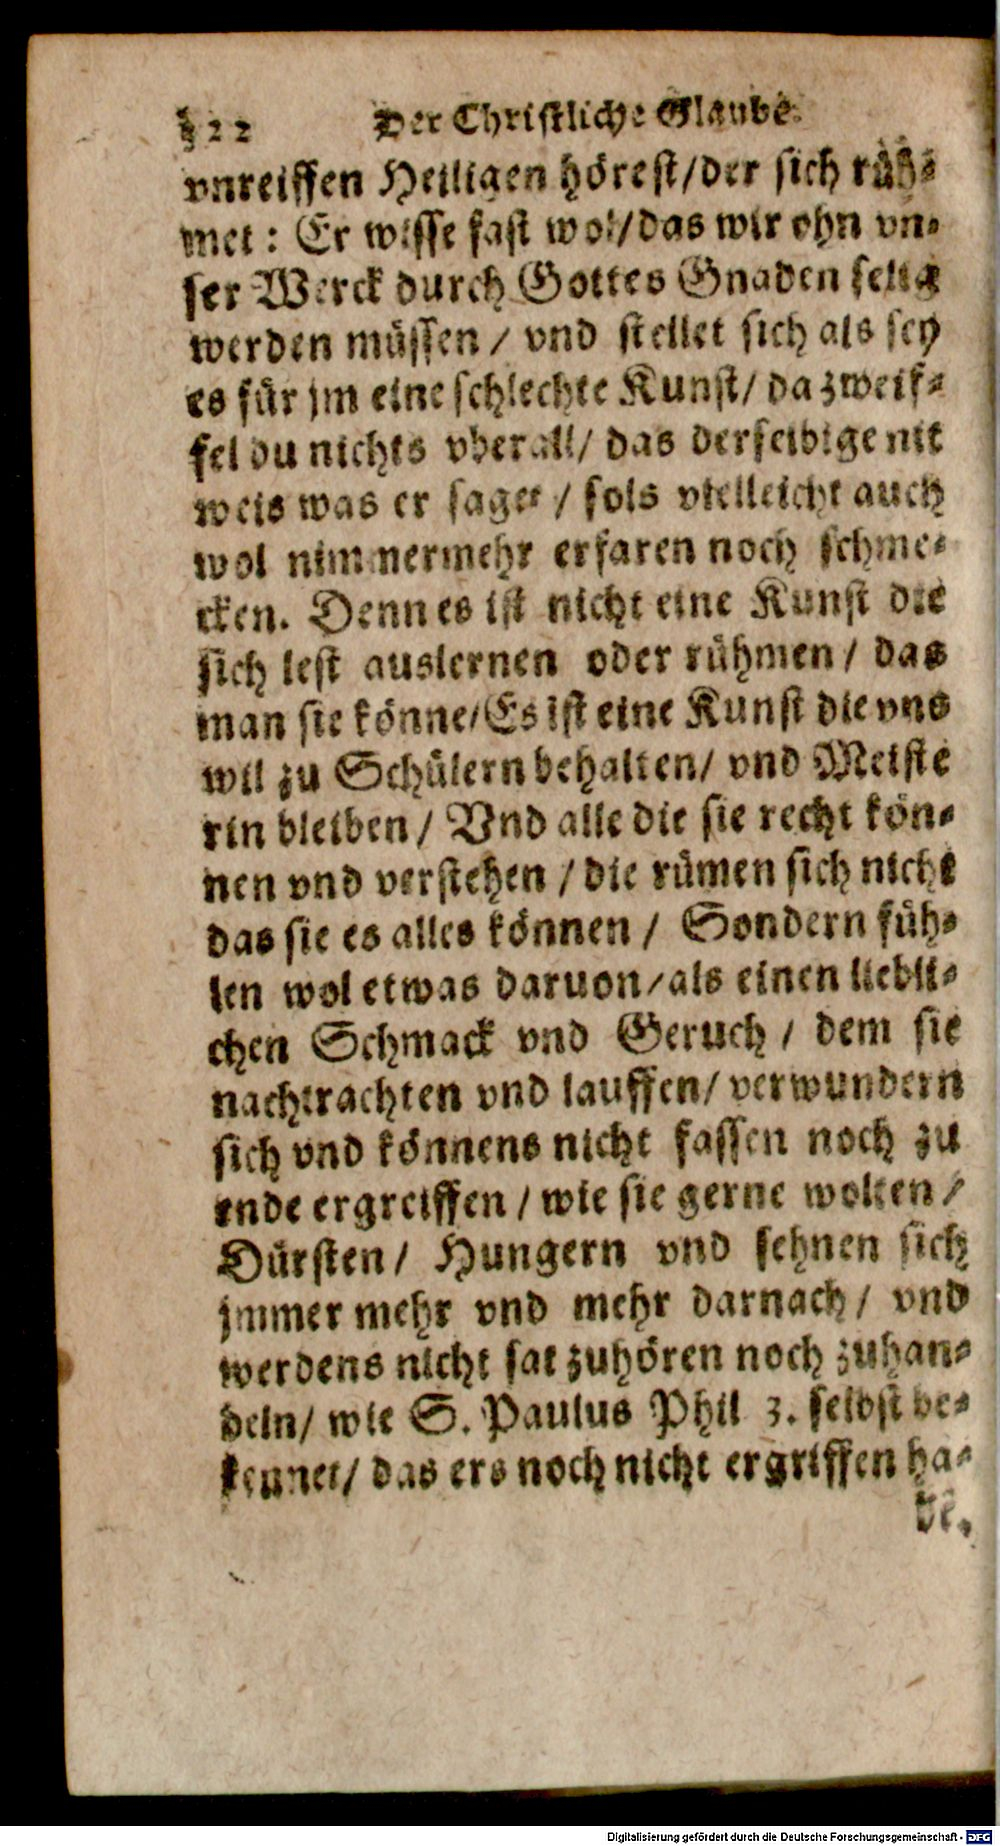 122 Der Christliche Glaube.
vnreiffen Heiligen hörest/der sich rüh-
met: Er wisse fast wol/das wir ohn vn-
ser Werck durch Gottes Gnaden selig
werden müssen / vnd stellet sich als sey
es für jm eine schlechte Kunst/ da zweif-
fel du nichts vberall/ das derselbige nit
weis was er saget / sols vielleicht auch
wol nimmermehr erfaren noch schme-
cken. Denn es ist nicht eine Kunst die
sich lest auslernen oder rühmen / das
man sie könne/Es ist eine Kunst die vns
wil zu Schülern behalten/ vnd Meiste
rin bleiben / Vnd alle die sie recht kön-
nen vnd verstehen / die rümen sich nicht
das sie es alles können / Sondern füh-
len wol etwas daruon/als einen liebli-
chen Schmack vnd Geruch / dem sie
nachtrachten vnd lauffen/ verwundern
sich vnd könnens nicht fassen noch zu
ende ergreiffen / wie sie gerne wolten /
Dürsten / Hungern vnd sehnen sich
jmmer mehr vnd mehr darnach / vnd
werdens nicht sat zuhören noch zuhan-
deln/ wie S. Paulus Phil 3. selbst be-
kennet/ das ers noch nicht ergriffen ha-
be.
Digitalisierung gefördert durch die Deutsche Forschungsgemeinschaft - DFG